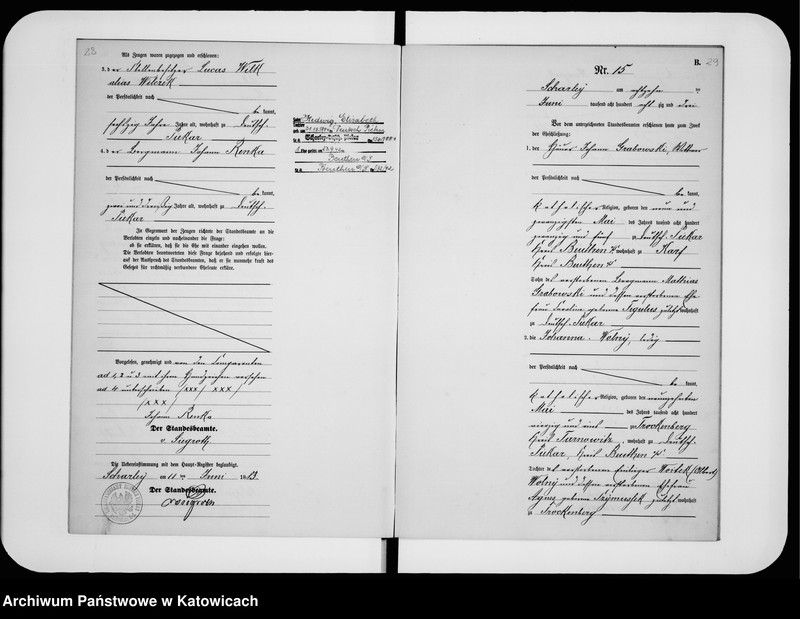 23
Als Zeugen waren zugezogen und erschienen:
3. der Stellenbesitzer Lucas Wilk
alias Wilczek
der Persönlichkeit nach
be kannt,
sechszig Jahre Jahre alt, wohnhaft zu Deutsch-
Piekar
4. der Bergmann Johann Renka
der Persönlichkeit nach
be kannt,
zwei und dreißig Jahre alt, wohnhaft zu Deutsch-
Piekar
In Gegenwart der Zeugen richtete der Standesbeamte an die
Verlobten einzeln und nacheinander die Frage:
ob sie erklären, daß sie die Ehe mit einander eingehen wollen.
Die Verlobten beantworteten diese Frage bejahend und erfolgte hier-
auf der Ausspruch des Standesbeamten, daß er sie nunmehr kraft des
Gesetzes für rechtmäßig verbundene Eheleute erkläre.
Vorgelesen, genehmigt und von den Comparenten
ad 1, 2 u 3 mit ihren Handzeichen versehen
ad 4 unterschrieben /xxx/ /xxx/
/xxx/
Johann Renka
Der Standesbeamte.
v. Siegroth
Die Uebereinstimmung mit dem Haupt-Register beglaubigt.
Scharley am 11 ten Juni 1883.
Der Standesbeamte.
v. Siegroth
Hedwig Elisabeth
Scharley
Beuthen O/S
Beuthen O/S
B. 29
Nr. 15
Scharley am achtzehn ten
Juni tausend acht hundert acht zig und drei
Vor dem unterzeichneten Standesbeamten erschienen heute zum Zweck
der Eheschließung:
1. der Häuer Johann Grabowski, Wittwer
der Persönlichkeit nach
be kannt,
katholischer Religion, geboren den neun und
zwanzigsten Mai des Jahres tausend acht hundert
zwanzig und fünf zu Deutsch-Piekar
Kreis Beuthen O/S wohnhaft zu Karf
Kreis Beuthen O/S
Sohn des verstorbenen Bergmann Mathias
Grabowski und dessen verstorbene Ehe-
frau Caroline, geborene Cygulus zuletzt wohnhaft
zu Deutsch-Piekar
2. die Johanna Wolny, ledig
der Persönlichkeit nach
be kannt,
katholischer Religion, geboren den neunzehnten
Mai des Jahres tausend acht hundert
vierzig und eins zu Trockenberg
Kreis Tarnowitz, wohnhaft zu Deutsch-
Piekar, Kreis Beuthen O/S
Tochter des verstorbenen Woitek (Albert)
Wolny und dessen verstorbene Ehefrau
Agnes geborene zuletzt wohnhaft
zu Trockenberg
Archiwum Państwowe w Katowicach